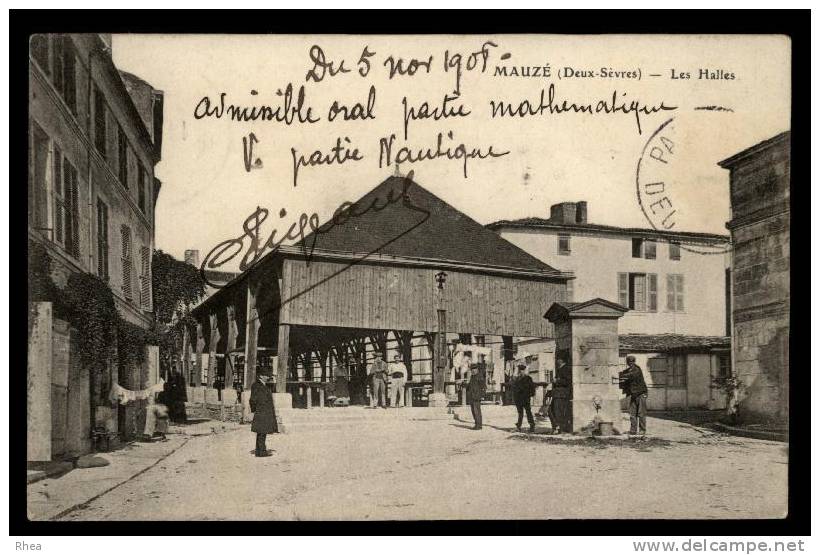 Du 5 nov 1908
MAUZÉ (Deux-Sèvres) — Les Halles
Admissible oral partie mathematique
V. partie Nautique
PA
DEU
Rhea
http://www.delcampe.net